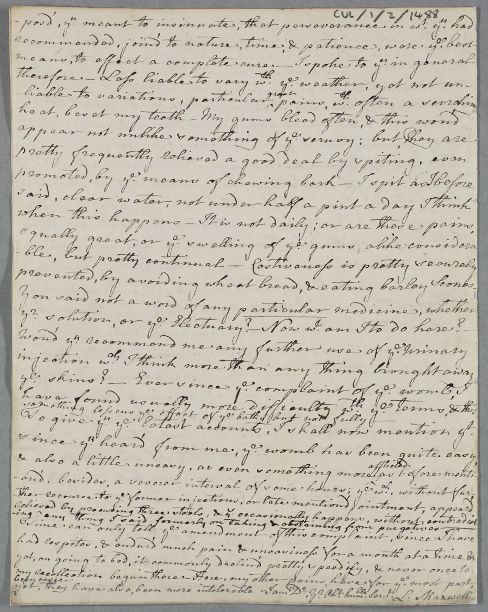 CUL/1/2/1488
-pos'd, yn meant to insinuate, that perseverance in wt yn had
recommended, join'd to nature, time, & patience, were ye best
means, to effect a complete cure. — I spoke to yn in general
therefore — Less liable to vary wth ye weather, yet not un-
liable to variations, particular great pains, wth often a
heat, beset my teeth. My gums bleed often, & this would
appear not unlike something of ye scurvy: but they are
pretty frequently relieved a good deal by spiting, even
promoted, by ye means of chewing bark — I spit as I before
said, clear water, not under half a pint a day I think
when this happens — It is not daily; or are these pains,
equally great, or ye swelling of ye gums, alike considera
ble, but pretty continual — Costiveness is pretty securely
prevented, by avoiding wheat bread, & eating barley Scones
You said not a word of any particular medicine, whether
yr solution, or ye Electuary? — Now wt am I to do here?
Wou'd yn recommend me any further use of ye Urinary
injection wch I think more than any thing brought away
ye skins? — Ever since ye complaint of ye womb I
have found usually more difficulty yn ye terms, & this
something lessens ye effect of ye baths, but not fully
To give yn ye latest accounts, I shall now mention yt
since yn heard from me, ye womb has been quite easy
& also a little uneasy, or even something more afflicted, as before menti-
ond, besides, a severer interval of some hours, yt wch, without fur
ther recourse to ye former injections, or late mentiond ointment, appeard
relieved by promoting three stools, & yt occasionally happens, without contradict
ing any thing I said formerly on taking & observing purgatives
Since I scarcely tell ye amendment of this complaint, since I have
had respites, & endured much pain & uneasiness for a month at a time &
yet, on going to bed, it commonly declind pretty speedily, & never once to
my recollection begun there — Here, any other pains, have for ye most part,
been easier
yet, they have also, been more intolerable. I am Dr. Sr. ye obt. humble Sert. L. Maxwell